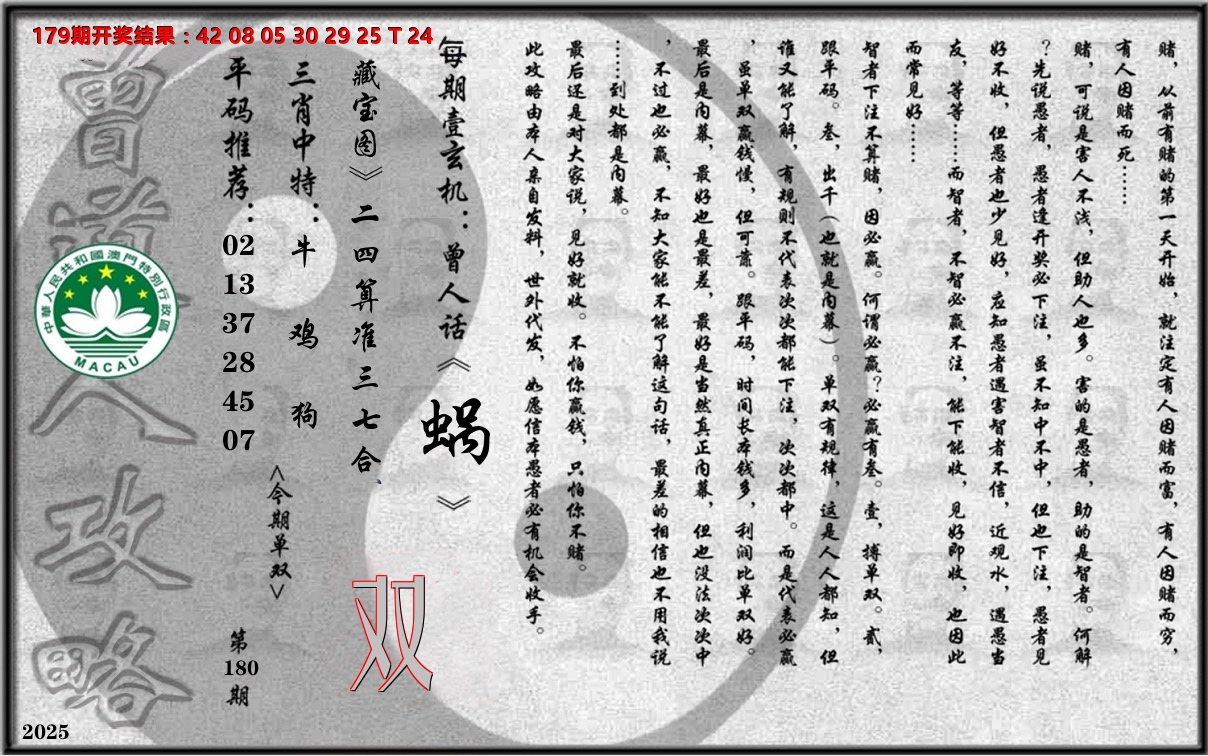 179期开奖结果：42 08 05 30 29 25 T 24
赌，从前有赌的第一天开始，就注定有人因赌而富，有人因赌而穷，
有人因赌而死……
赌，可说是害人不浅，但助人也多。害的是愚者，助的是智者。何解
？先说愚者，愚者逢开奖必下注，虽不知中不中，但也下注，愚者见
好不收，但愚者也少见好，应知愚者遇害智者不信，近观水，遇愚当
友，等等……而智者，不智必赢不注，能下能收，见好即收，也因此
而常见好……
智者下注不算赌，因必赢。何谓必赢？必赢有叁。壹，搏单双。贰，
跟平码。叁，出千（也就是内幕）。单双有规律，这是人人都知，但
谁又能了解，有规则不代表次次都能下注，次次都中。而是代表必赢
，虽单双赢钱慢，但可靠。跟平码，时间长本钱多，利润比单双好。
最后是内幕，最好也是最差，最好是当然真正内幕，但也没法次次中
，不过也必赢，不知大家能不能了解这句话，最差的相信也不用我说
……到处都是内幕。
最后还是对大家说，见好就收。不怕你赢钱，只怕你不赌。
此攻略由本人亲自发料，世外代发，如愿信本愚者必有机会收手。
每期壹玄机：曾人话《蜗》
藏宝图》二四算准三七合、
三肖中特：牛 鸡 狗
平码推荐：02 13 37 28 45 07
<今期单双>
双
第180期
曾道人攻略
中華人民共和國澳門特別行政區
MACAU
2025